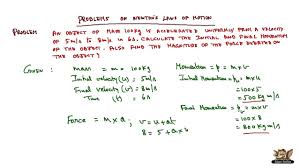 PROBLEMS ON NEWTON'S LAWS OF MOTION
PROBLEM AN OBJECT OF MASS 100kg IS ACCELERATED UNIFORMLY FROM A VELOCITY
OF 5 m/s TO 8 m/s IN 6s. CALCULATE THE INITIAL AND FINAL MOMENTUM
OF THE OBJECT. ALSO FIND THE MAGNITUDE OF THE FORCE EXERTED ON
THE OBJECT.
GIVEN:
Mass = m = 100kg
Initial velocity (u) = 5 m/s
Final velocity (v) = 8 m/s
Time (t) = 6s
Momentum = p = m×v
Initial Momentum = p₁ = m×u
= 100×5
= 500 kg m/s
Final Momentum = p₂ = m×v
= 100×8
= 800 kg m/s
Force = m×a;
v = u+at
8 = 5+a×6